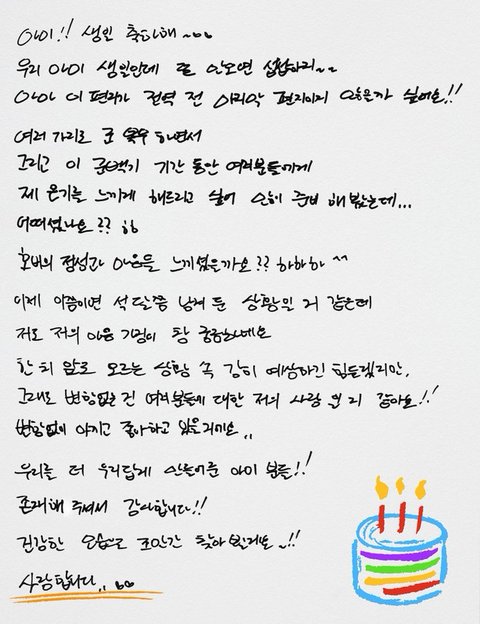 아미!! 생일 축하해~~
우리 아미 생일인데 또 안오면 섭섭하지~~
아마 이 편지가 전역 전 마지막 편지이지 않을까 싶어요!!
여러 가지로 군 복무 하면서
그리고 이 공백기 기간 동안 여러분들에게
제 온기를 느끼게 해드리고 싶어 많이 준비 해 봤는데...
어떠셨나요?? ㅎㅎ
호비의 정성과 마음을 느끼셨을까요?? 하하하 ^^
이제 이쯤이면 석 달쯤 남겨 둔 상황일 거 같은데
저도 저의 마음 가짐이 참 궁금하네요
한 치 앞도 모르는 상황 속 감히 예상하긴 힘들겠지만,
그래도 변함없는 건 여러분들에 대한 저의 사랑 일 거 같아요!!
변함없이 아끼고 좋아하고 있을거예요..
우리를 더 우리답게 만들어준 아미 분들!!
존재해 주셔서 감사합니다!!
건강한 모습으로 조만간 찾아 뵐게요~!!
사랑합니다..